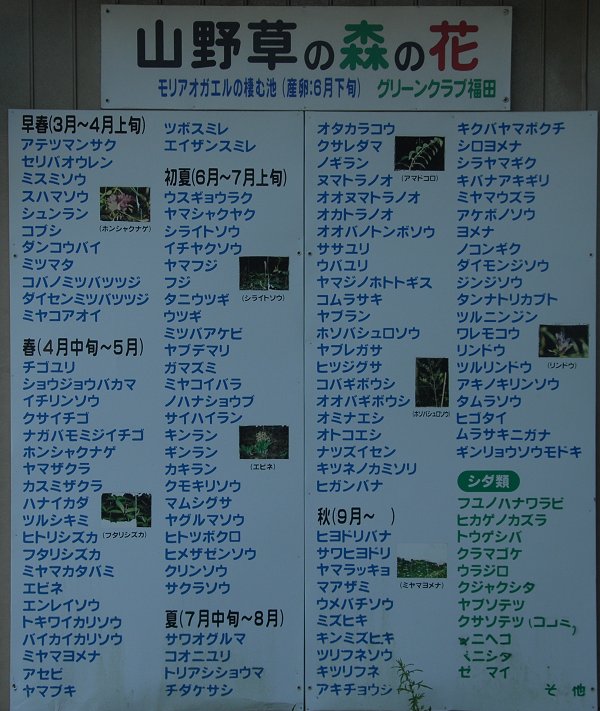 山野草の森の花
モリアオガエルの棲む池（産卵:6月下旬） グリーンクラブ福田
早春(3月～4月上旬)
アテツマンサク
セリバオウレン
ミスミソウ
スハマソウ
シュンラン
コブシ
ダンコウバイ
ミツマタ
コバノミツバツツジ
ダイセンミツバツツジ
ミヤコアオイ
(ホンシャクナゲ)
春(4月中旬～5月)
チゴユリ
ショウジョウバカマ
イチリンソウ
クサイチゴ
ナガバモミジイチゴ
ホンシャクナゲ
ヤマザクラ
カスミザクラ
ハナイカダ
ツルシキミ
ヒトリシズカ
フタリシズカ
ミヤマカタバミ
エビネ
エンレイソウ
トキワイカリソウ
バイカイカリソウ
ミヤマヨメナ
アセビ
ヤマブキ
(フタリシズカ)
ツボスミレ
エイザンスミレ
初夏(6月～7月上旬)
ウスギョウラク
ヤマシャクヤク
シライトソウ
イチヤクソウ
ヤマフジ
フジ
タニウツギ
ウツギ
ミツバアケビ
ヤブデマリ
ガマズミ
ミヤコイバラ
ノハナショウブ
サイハイラン
キンラン
ギンラン
カキラン
クモキリソウ
マムシグサ
ヤグルマソウ
ヒトツボクロ
ヒメサゼンソウ
クリンソウ
サクラソウ
(シライトソウ)
(エビネ)
夏(7月中旬～8月)
サワオグルマ
コオニユリ
トリアシショウマ
チダケサシ
オタカラコウ
クサレダマ
ノギラン
ヌマトラノオ
オオヌマトラノオ
オカトラノオ
オオバノトンボソウ
ササユリ
ウバユリ
ヤマジノホトトギス
コムラサキ
ヤブラン
ホソバシュロソウ
ヤブレガサ
ヒツジグサ
コバギボウシ
オオバギボウシ
オミナエシ
オトコエシ
ナツズイセン
キツネノカミソリ
ヒガンバナ
(アマドコロ)
(ホソバシュロソウ)
秋(9月～ )
ヒヨドリバナ
サワヒヨドリ
ヤマラッキョ
マアザミ
ウメバチソウ
ミズヒキ
キンミズヒキ
ツリフネソウ
キツリフネ
アキチョウジ
(ミヤマヨメナ)
キクバヤマボクチ
シロヨメナ
シラヤマギク
キバナアキギリ
ミヤマウズラ
アケボノソウ
ヨメナ
ノコンギク
ダイモンジソウ
ジンジソウ
タンナトリカブト
ツルニンジン
ワレモコウ
リンドウ
ツルリンドウ
アキノキリンソウ
タムラソウ
ヒゴタイ
ムラサキニガナ
ギンリョウソウモドキ
(リンドウ)
シダ類
フユノハナワラビ
ヒカゲノカズラ
トウゲシバ
クラマゴケ
ウラジロ
クジャクシダ
ヤブソテツ
クサソテツ(コゴミ)
ニヘコ
ニシダ
ゼ マイ
そ 他